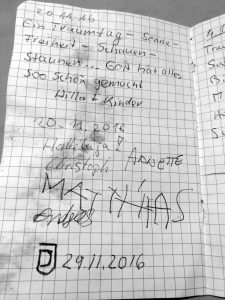 20.11.16
Ein Traumtag - Sonne -
Freiheit - Schauen -
Staunen ... Gott hat alles
soo schön gemacht
Willa + Kinder
20.11.2016
Halleluja!
Christoph ANNETTE
MATTHIAS
29.11.2016